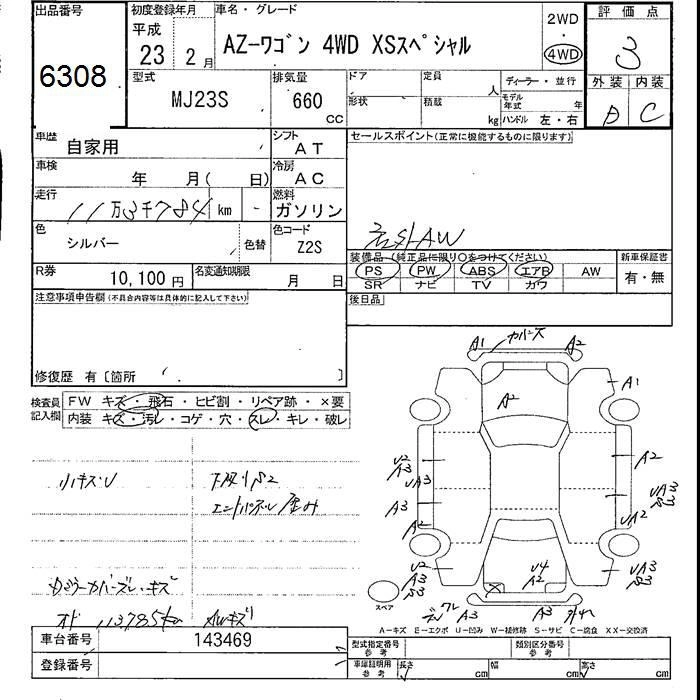 出品番号 初度登録年月 車名・グレード 2WD 評価点
平成 23 2月 AZーワゴン 4WD XSスペシャル 4WD 3
6308
型式 排気量 ドア 定員 人 ディーラー・並行 外装 内装
MJ23S 660 CC 形状 積載 kg モデル年式 年 ハンドル 左・右 D C
車歴 自家用 シフト AT セールスポイント(正常に機能するものに限ります)
車検 年 月( 日) 冷房 AC
走行 11万3千784 km - 燃料 ガソリン
色 シルバー 色替 色コード Z2S 社外AW
装備品 (純正品に限り○をつけてください) 新車保証書
R券 10,100円 名変通知期限 月 日 PS PW ABS エアB AW 有・無
SR ナビ TV カワ
注意事項申告欄(不具合内容等は具体的に記入して下さい) 後日品
修復歴 有〔箇所 〕
検査員記入欄 FW キズ・飛石・ヒビ割・リペア跡・×要
内装 キズ・汚レ・コゲ・穴・スレ・キレ・破レ
A1 カバーズレ A2
A1
A2
U2 A3 UA3 A2
A3 UA3 S3
A2 UA2
小キズ・U 下廻りS2
エンドパネル歪み
U2 A3 S3 U4 A2 UA3 S3
スペア
A3 A3
ドアミラーカバーズレ・キズ
オド 113785km AWキズ
A−キズ E−エクボ U−凹み W−補修跡 S−サビ C−腐食 XX−交換済
車台番号 143469 型式指定番号 参考 類別区分番号 参考
登録番号 車庫証明用 参考 長さ cm 幅 cm 高さ cm